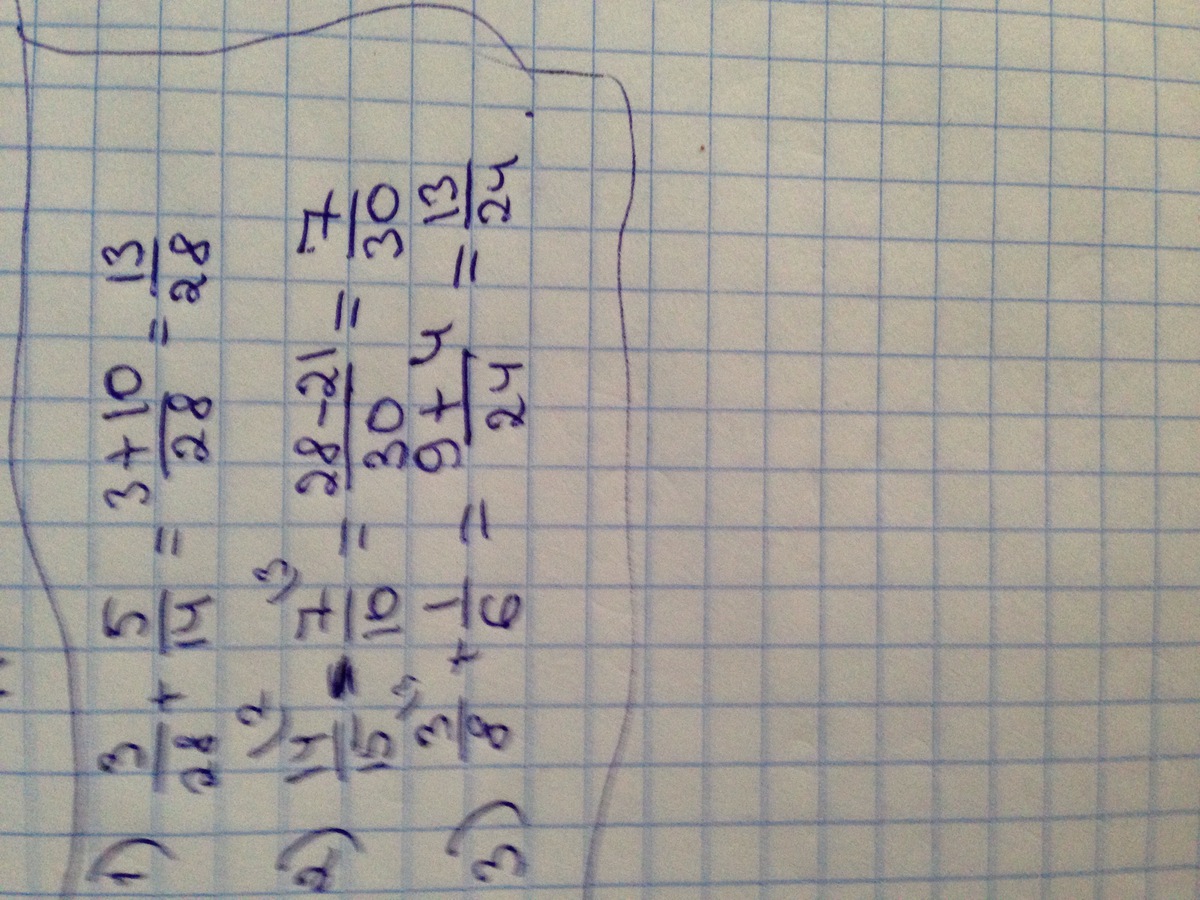 1) 3/28 + 5/14 = (3+10)/28 = 13/28
2) 14/15 ²⁾ - 7/10 ³⁾ = (28-21)/30 = 7/30
3) 3/8 ³⁾ + 1/6 = (9+4)/24 = 13/24